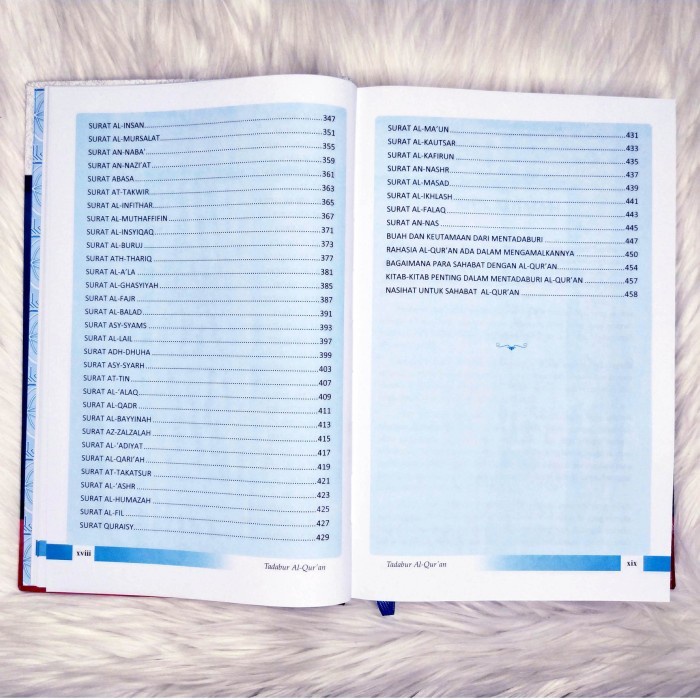 SURAT AL-INSAN 347
SURAT AL-MURSALAT 351
SURAT AN-NABA' 355
SURAT AN-NAZI'AT 359
SURAT ABASA 361
SURAT AT-TAKWIR 363
SURAT AL-INFITHAR 365
SURAT AL-MUTHAFFIFIN 367
SURAT AL-INSYIQAQ 371
SURAT AL-BURUJ 373
SURAT ATH-THARIQ 377
SURAT AL-A'LA 381
SURAT AL-GHASYIYAH 385
SURAT AL-FAJR 387
SURAT AL-BALAD 391
SURAT ASY-SYAMS 393
SURAT AL-LAIL 397
SURAT ADH-DHUHA 399
SURAT ASY-SYARH 403
SURAT AT-TIN 407
SURAT AL-'ALAQ 409
SURAT AL-QADR 411
SURAT AL-BAYYINAH 413
SURAT AZ-ZALZALAH 415
SURAT AL-'ADIYAT 417
SURAT AL-QARI'AH 419
SURAT AT-TAKATSUR 421
SURAT AL-'ASHR 423
SURAT AL-HUMAZAH 425
SURAT AL-FIL 427
SURAT QURAISY 429
xviii
Tadabur Al-Qur'an
SURAT AL-MA'UN 431
SURAT AL-KAUTSAR 433
SURAT AL-KAFIRUN 435
SURAT AN-NASHR 437
SURAT AL-MASAD 439
SURAT AL-IKHLASH 441
SURAT AL-FALAQ 443
SURAT AN-NAS 445
BUAH DAN KEUTAMAAN DARI MENTADABURI 447
RAHASIA AL-QUR'AN ADA DALAM MENGAMALKANNYA 450
BAGAIMANA PARA SAHABAT DENGAN AL-QUR'AN 454
KITAB-KITAB PENTING DALAM MENTADABURI AL-QUR'AN 457
NASIHAT UNTUK SAHABAT AL-QUR'AN 458
Tadabur Al-Qur'an
xix